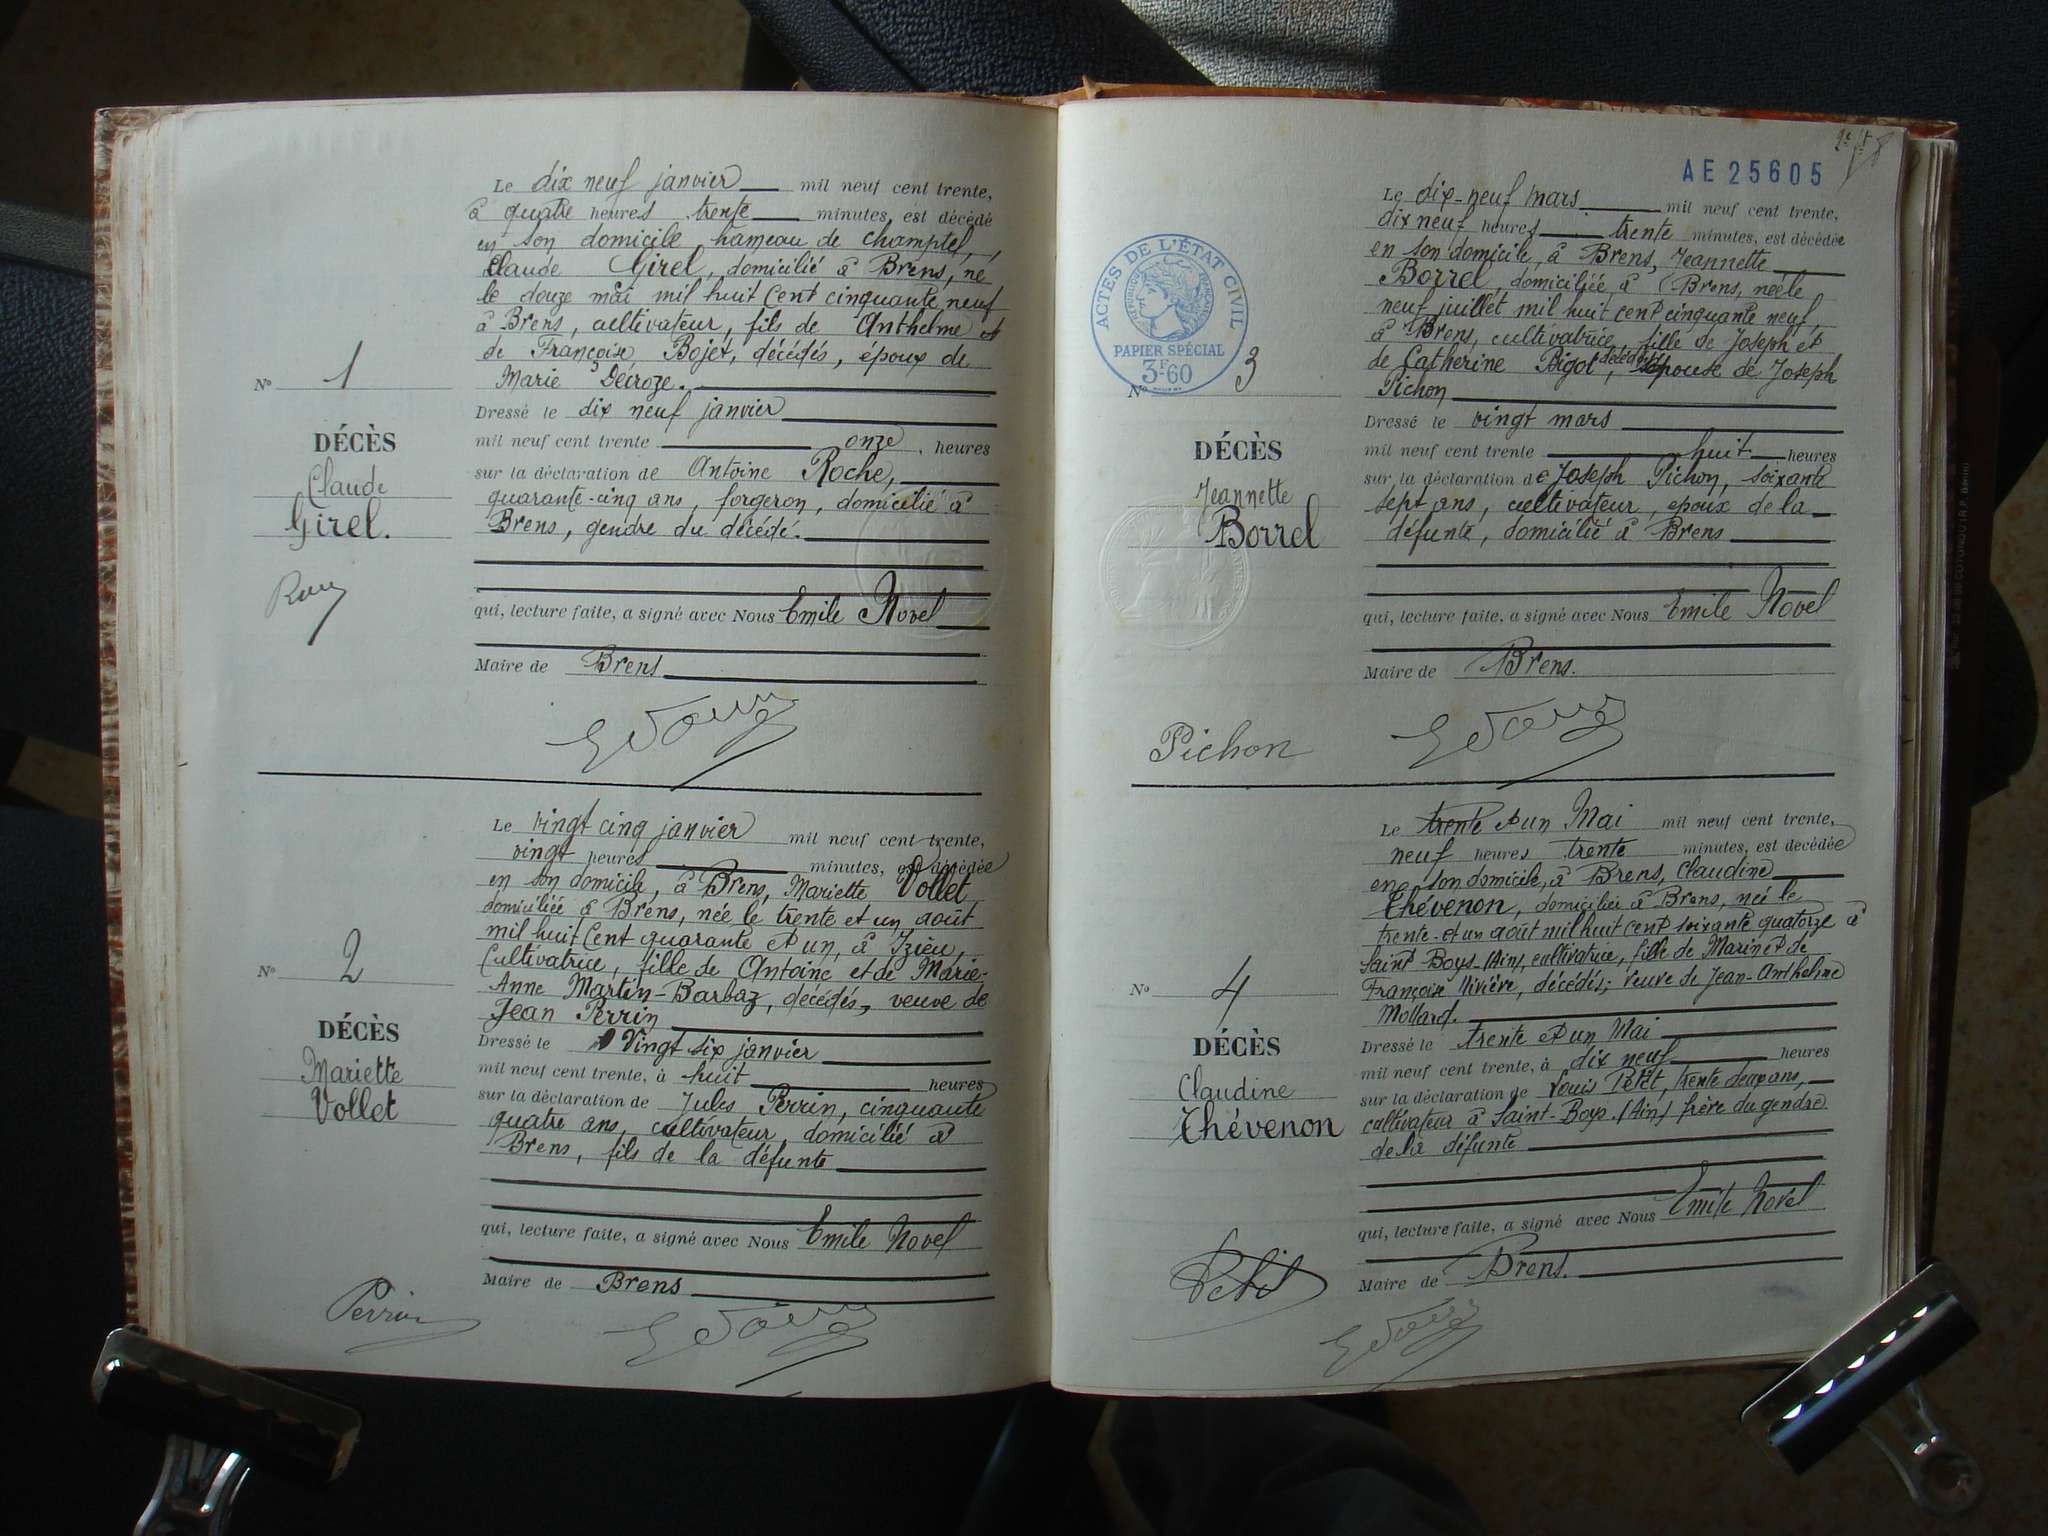 Le dix neuf janvier mil neuf cent trente,
à quatre heures trente minutes, est décédé
en son domicile, hameau de Champtel,
Claude Girel, domicilié à Brens, né
le douze mai mil huit cent cinquante neuf
à Brens, cultivateur, fils de Anthelme et
de Françoise Bojet, décédés, époux de
Marie Décroze.
N° 1
Dressé le dix neuf janvier
DÉCÈS
mil neuf cent trente onze heures
Claude
sur la déclaration de Antoine Roche,
Girel.
quarante-cinq ans, forgeron, domicilié à
Brens, gendre du décédé.
qui, lecture faite, a signé avec Nous Emile Novel
Maire de Brens
Le vingt cinq janvier mil neuf cent trente,
vingt heures minutes, est décédée
en son domicile, à Brens, Mariette Vollet,
domiciliée à Brens, née le trente et un août
mil huit cent quarante et un, à Izieu,
Cultivatrice, fille de Antoine et de Marie-
Anne Martin-Barbaz, décédés, veuve de
Jean Perrin
N° 2
Dressé le Vingt six janvier
DÉCÈS
mil neuf cent trente, à huit heures
Mariette
sur la déclaration de Jules Perrin, cinquante
Vollet
quatre ans, cultivateur, domicilié à
Brens, fils de la défunte
qui, lecture faite, a signé avec Nous Emile Novel
Maire de Brens
Perrin
AE 25605
ACTES DE L'ÉTAT CIVIL
RÉPUBLIQUE FRANÇAISE
PAPIER SPÉCIAL
3F60
Le dix-neuf mars mil neuf cent trente,
dix neuf heures trente minutes, est décédée
en son domicile, à Brens, Jeannette
Borrel, domiciliée, à Brens, née le
neuf juillet mil huit cent cinquante neuf,
à Brens, cultivatrice, fille de Joseph et
de Catherine Bigot, décédés, épouse de Joseph
Pichon
N° 3
Dressé le vingt mars
DÉCÈS
mil neuf cent trente huit heures
Jeannette
sur la déclaration de Joseph Pichon, soixante
Borrel
sept ans, cultivateur, epoux de la
défunte, domicilié à Brens
qui, lecture faite, a signé avec Nous Emile Novel
Maire de Brens.
Pichon
Le trente et un Mai mil neuf cent trente,
neuf heures trente minutes, est decédée
en son domicile, à Brens, Claudine
Thévenon, domiciliée à Brens, née le
trente-et un août mil huit cent soixante quatorze à
Saint Boys (Ain), cultivatrice, fille de Marin et de
Françoise Rivière, décédés; veuve de Jean-Anthelme
Mollard.
N° 4
Dressé le trente et un Mai
DÉCÈS
mil neuf cent trente, à dix neuf heures
Claudine
sur la déclaration de Louis Petit, trente deux ans,
Thévenon
cultivateur à Saint-Boys. (Ain) frère du gendre
de la défunte
qui, lecture faite, a signé avec Nous Emile Novel
Maire de Brens.
Petit